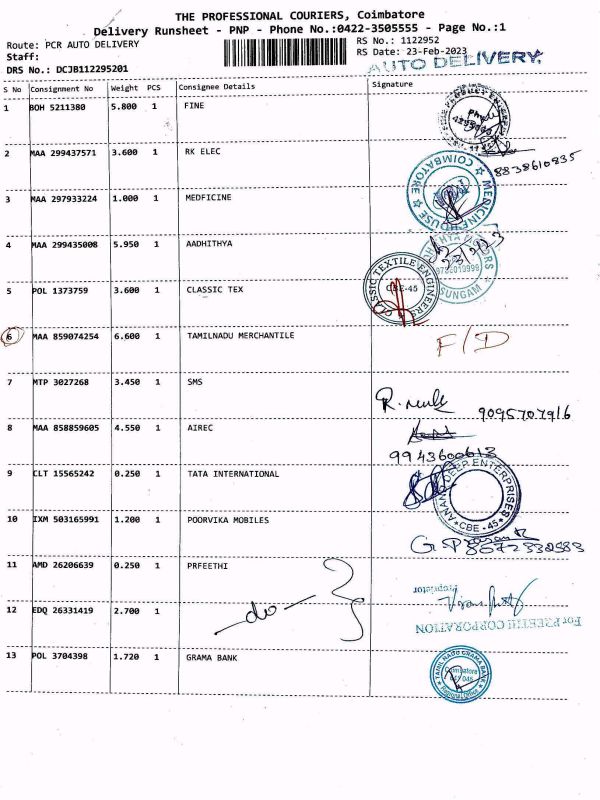 THE PROFESSIONAL COURIERS, Coimbatore
Delivery Runsheet - PNP - Phone No.:0422-3505555 - Page No.:1
Route: PCR AUTO DELIVERY RS No.: 1122952
Staff: RS Date: 23-Feb-2023
AUTO DELIVERY.
DRS No.: DCJB112295201
S No Consignment No Weight PCS Consignee Details Signature
1 BOH 5211380 5.800 1 FINE
2 MAA 299437571 3.600 1 RK ELEC
8838610835
COIMBATORE
MEDICINE HOUSE
3 MAA 297933224 1.000 1 MEDFICINE
4 MAA 299435008 5.950 1 AADHITHYA
SUNGAM
5 POL 1373759 3.600 1 CLASSIC TEX
CLASSIC TEXTILE ENGINEERS
CBE-45
6 MAA 859074254 6.600 1 TAMILNADU MERCHANTILE F/D
7 MTP 3027268 3.450 1 SMS
9095707916
8 MAA 858859605 4.550 1 AIREC
9943600613
9 CLT 15565242 0.250 1 TATA INTERNATIONAL
DEEP ENTERPRISES
CBE-45
10 IXM 503165991 1.200 1 POORVIKA MOBILES
11 AMD 26206639 0.250 1 PRFEETHI
Proprietor
12 EDQ 26331419 2.700 1 -do-
For PREETHI CORPORATION
13 POL 3704398 1.720 1 GRAMA BANK
TAMIL NADU GRAMA BANK
Coimbatore
641 045
Regional Office